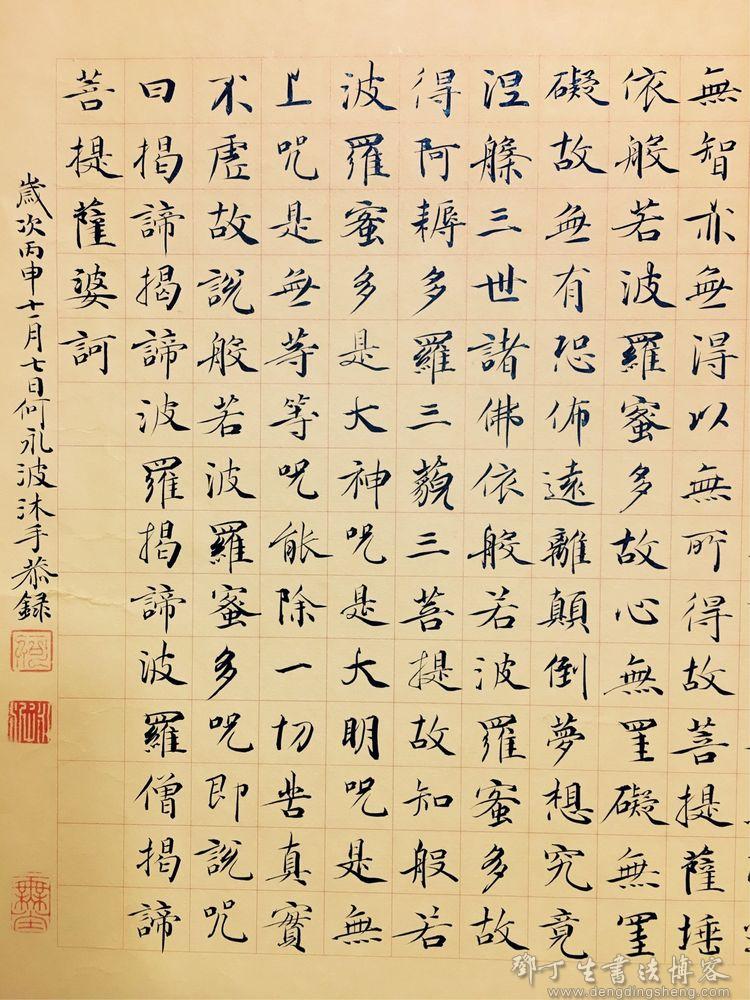 無智亦無得以無所得故菩提薩埵
依般若波羅蜜多故心無罣礙無罣
礙故無有恐怖遠離顛倒夢想究竟
涅槃三世諸佛依般若波羅蜜多故
得阿耨多羅三藐三菩提故知般若
波羅蜜多是大神咒是大明咒是無
上咒是無等等咒能除一切苦真實
不虛故說般若波羅蜜多咒即說咒
曰揭諦揭諦波羅揭諦波羅僧揭諦
菩提薩婆訶
歲次丙申十一月七日何永波沐手恭録
鄧丁生書法博客
www.dengdingsheng.com